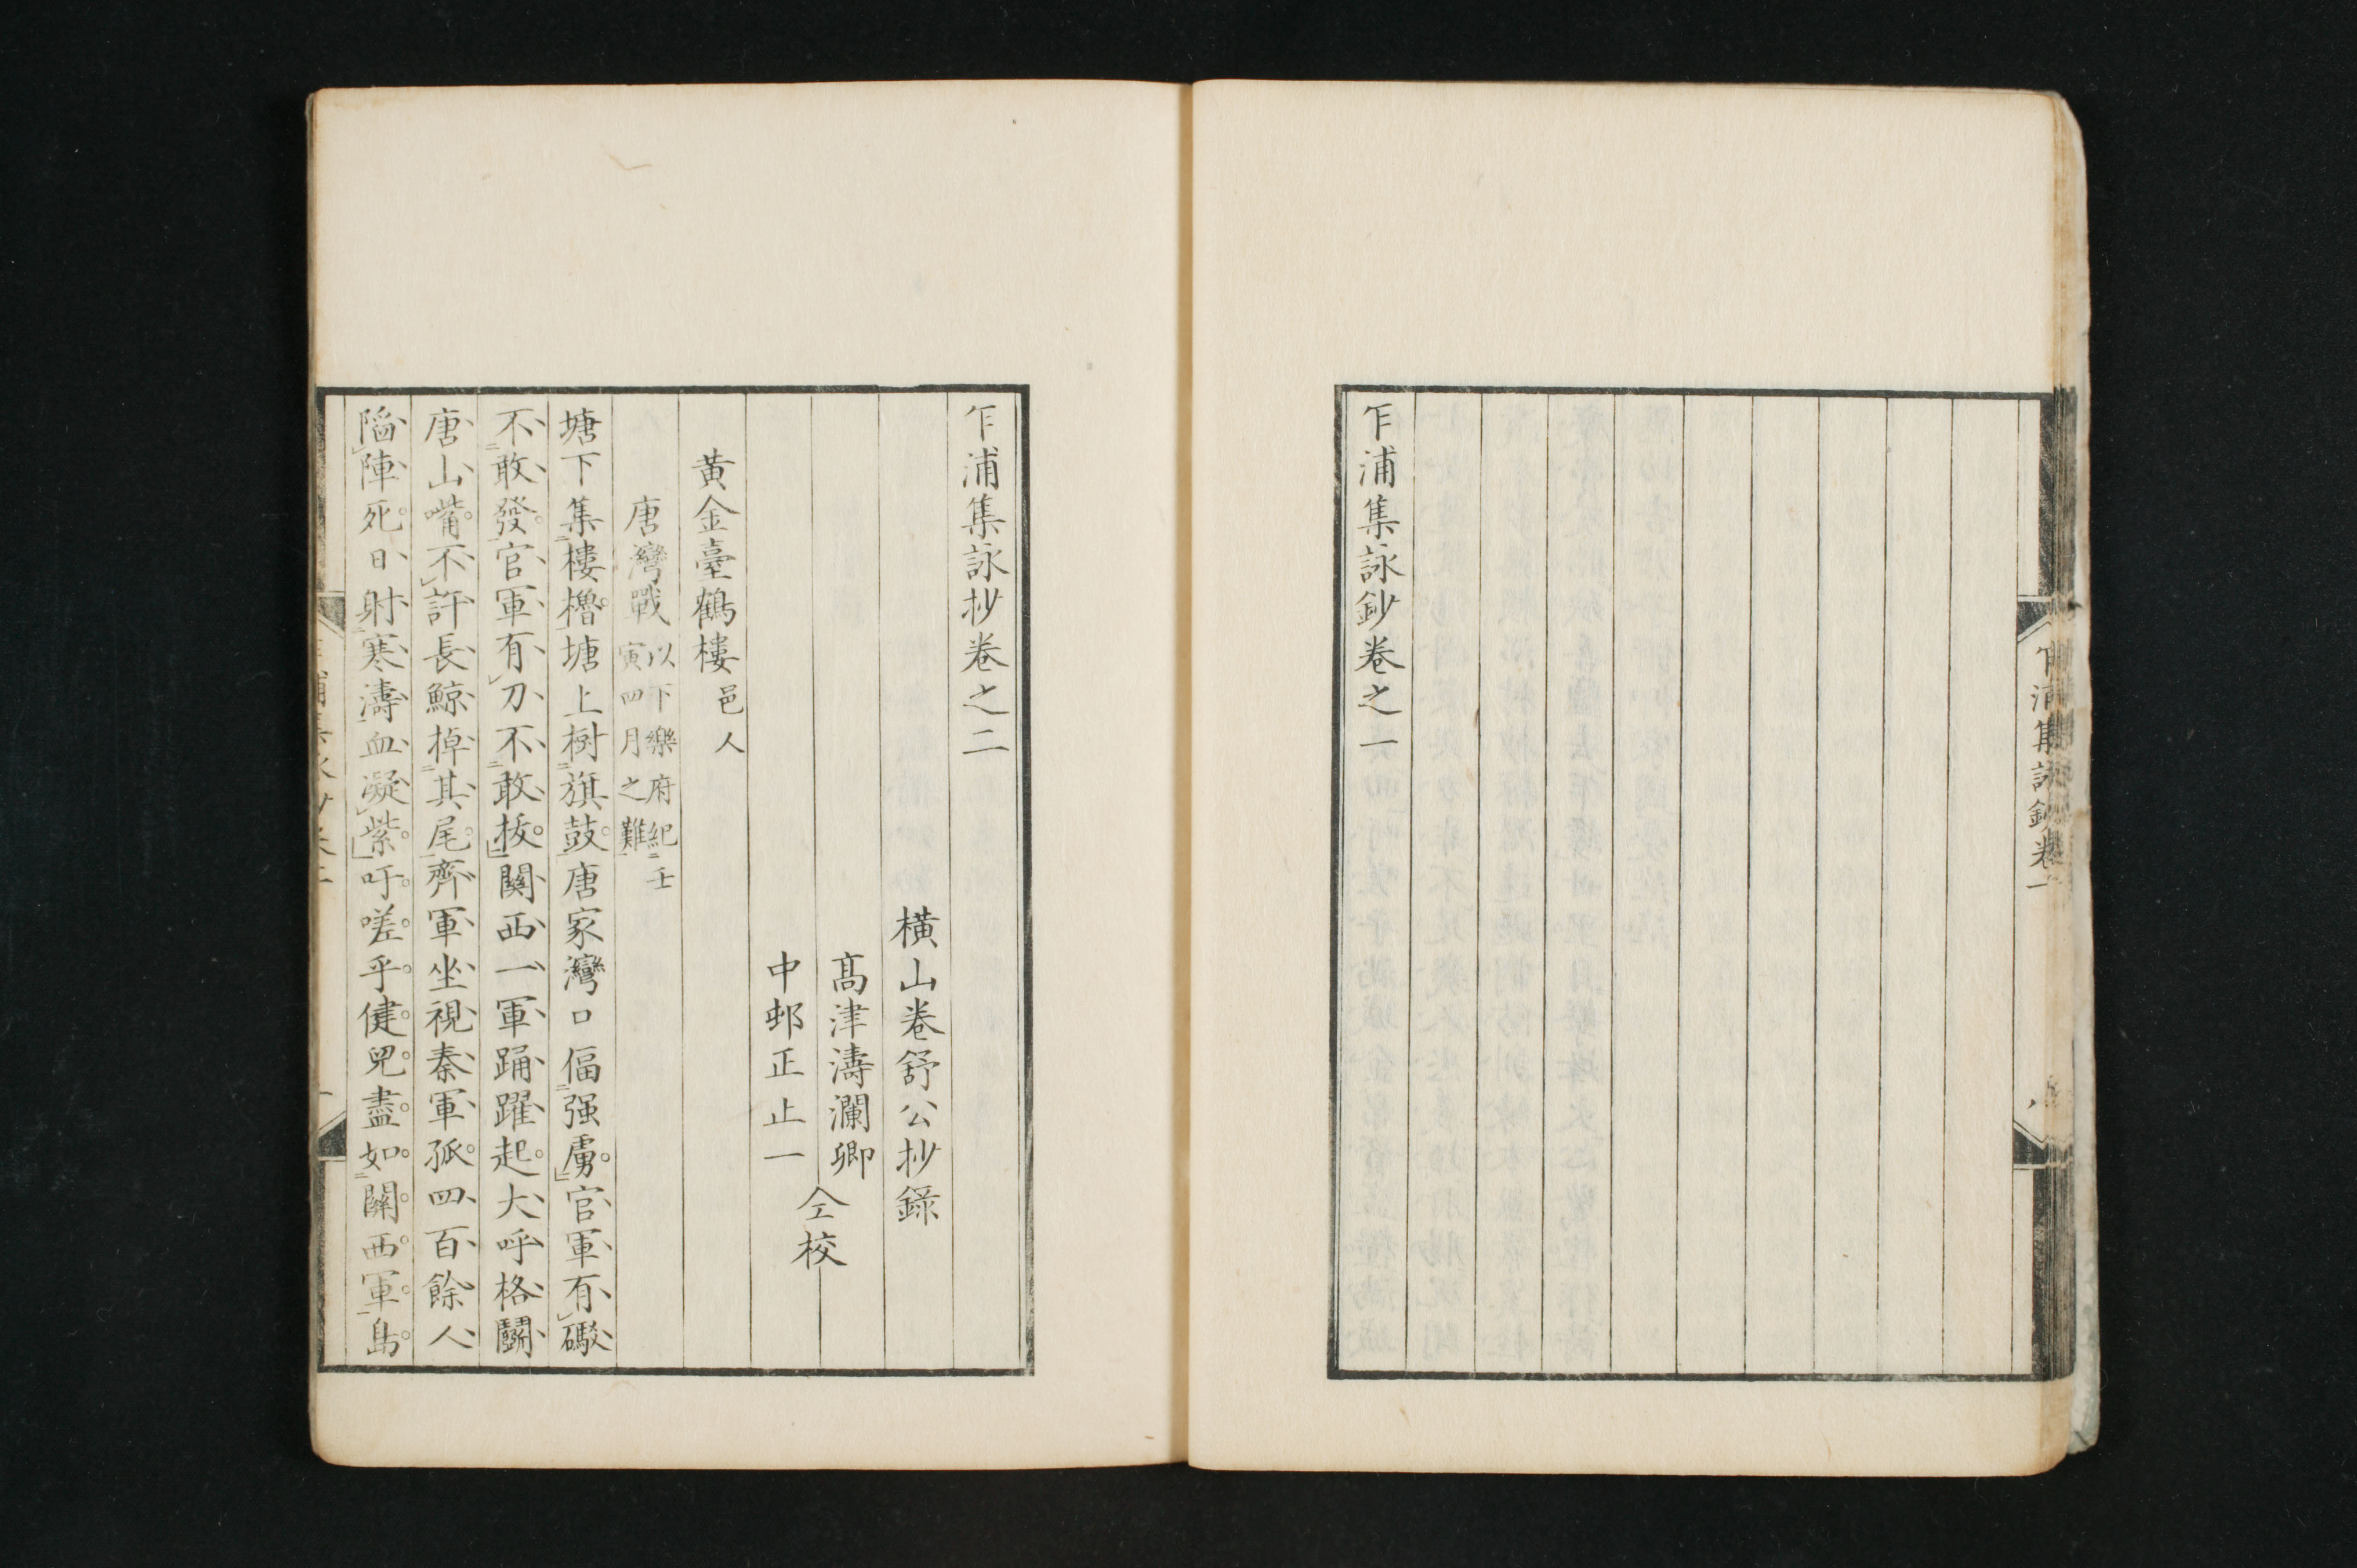 乍浦集詠鈔卷一
乍浦集詠鈔卷之一
乍浦集詠抄卷之二
橫山卷舒公抄錄
髙津濤瀾卿
中邨正止一
仝校
黄金臺鶴樓邑人
唐灣戰以下樂府紀壬
寅四月之難
塘下集樓櫓塘上樹旗鼓唐家灣口偪强虜官軍有礮
不敢發官軍有刀不敢拔關西一軍踊躍起大呼格鬬
唐山嘴不許長鯨掉其尾齊軍坐視秦軍孤四百餘人
陷陣死日射寒濤血凝紫吁嗟乎健兒盡如關西軍島